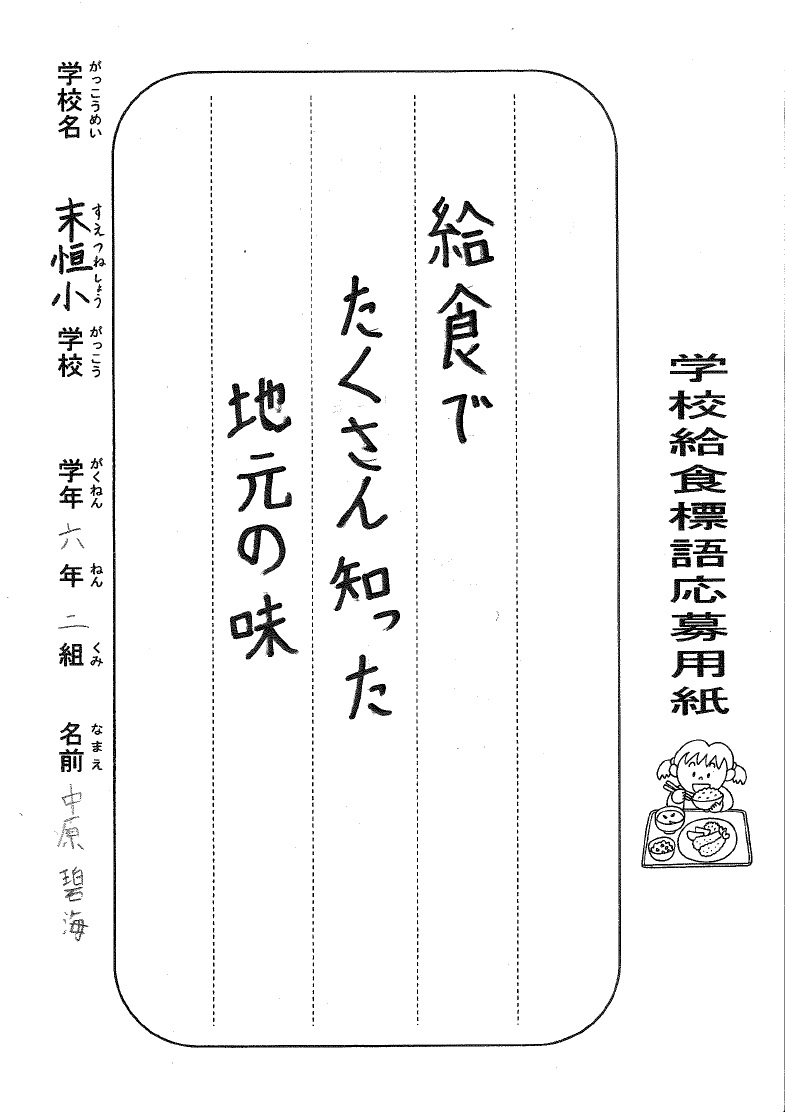 学校給食標語応募用紙
給食で
たくさん知った
地元の味
学校名 末恒小学校 学年 六年 二組 名前 中原 碧海
がっこうめい すえつねしょう がっこう がくねん ねん くみ なまえ